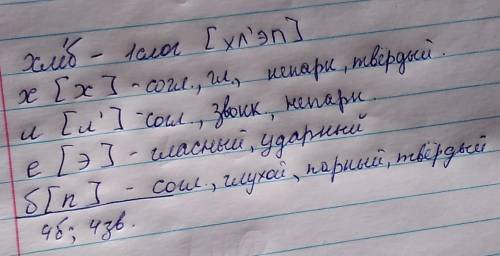 хле́б - 1 слог [хл'эп]
х [х] - согл., гл., непарн, твёрдый.
л [л'] - согл., звонк, непарн.
е [э] - гласный, ударный
б [п] - согл., глухой, парный, твёрдый
4б; 4зв.